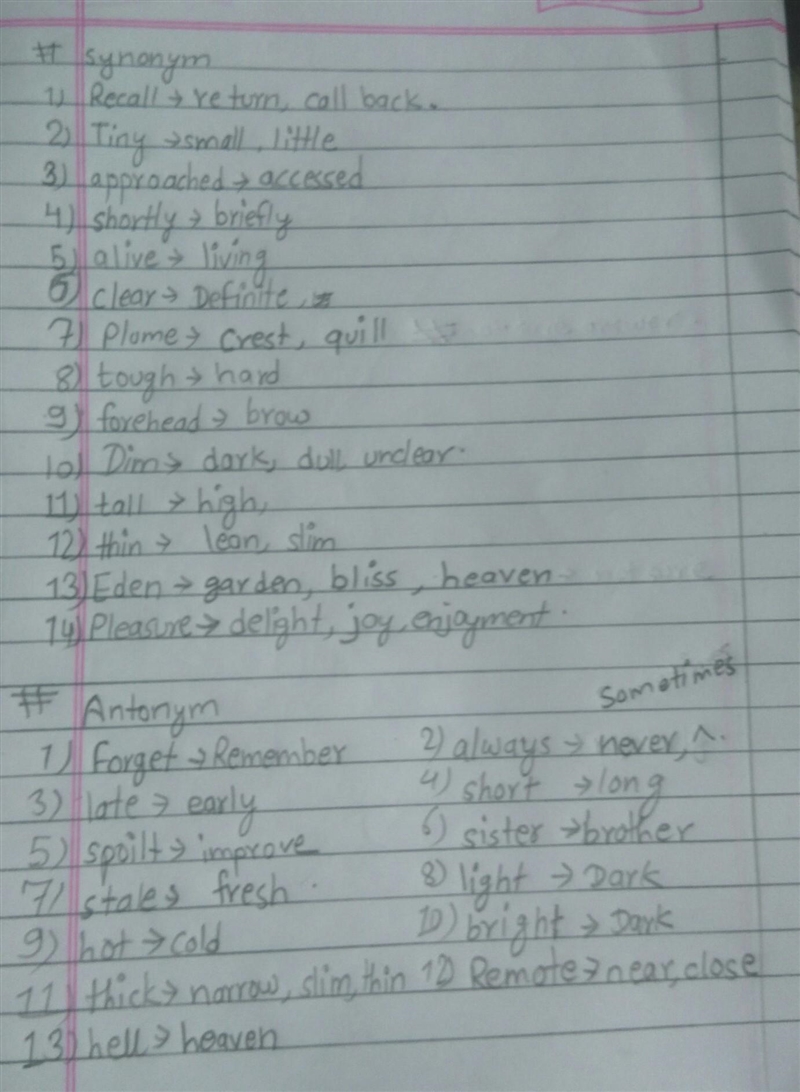 # Synonym
1) Recall → return, call back.
2) Tiny → small, little
3) approached → accessed
4) shortly → briefly
5) alive → living
6) clear → Definite,
7) Plome → crest, quill
8) tough → hard
9) forehead → brow
10) Dim → dark, dull unclear.
11) tall → high,
12) thin → lean, slim
13) Eden → garden, bliss, heaven
14) Pleasure → delight, joy, enjoyment.
# Antonym
sometimes
1) Forget → Remember 2) always → never, ^.
3) late → early 4) short → long
5) spoilt → improve 6) sister → brother
7) stale → fresh. 8) light → Dark
9) hot → cold 10) bright → Dark
11) thick → narrow, slim, thin 12) Remote → near, close
13) hell → heaven